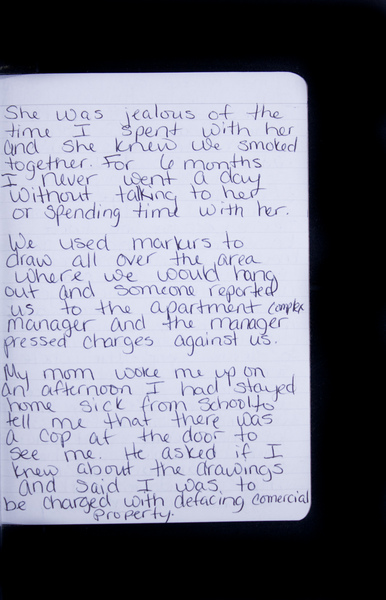 She was jealous of the
time I spent with her
and she knew we smoked
together. For 6 months
I never went a day
without talking to her
or spending time with her.
We used markurs to
draw all over the area
where we would hang
out and someone reported
us to the apartment complex
manager and the manager
pressed charges against us.
My mom woke me up on
an afternoon I had stayed
home sick from school to
tell me that there was
a cop at the door to
see me. He asked if I
knew about the drawings
and said I was to
be charged with defacing comercial
property.